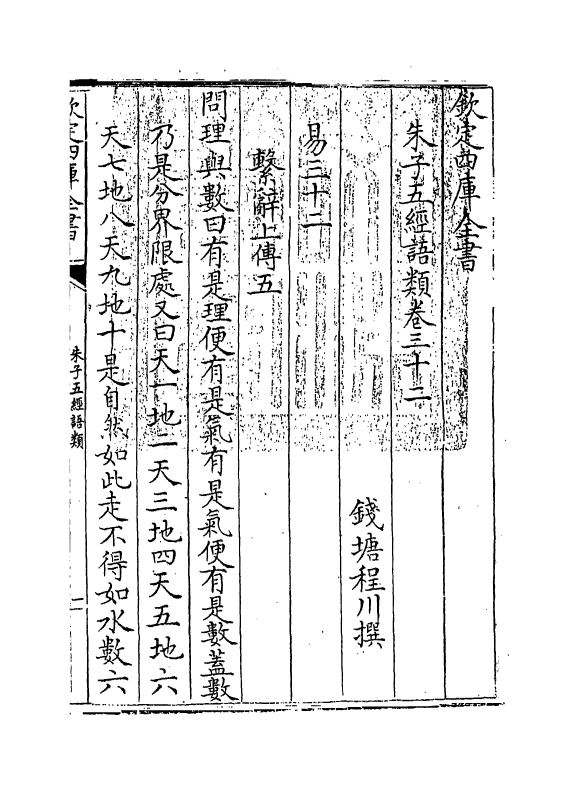 欽定四庫全書
朱子五經語類卷三十二
錢塘程川撰
易三十二
繫辭上傳五
問理與數曰有是理便有是氣有是氣便有是數蓋數
乃是分界限處又曰天一地二天三地四天五地六
天七地八天九地十是自然如此走不得如水數六
欽定四庫全書
朱子五經語類
一